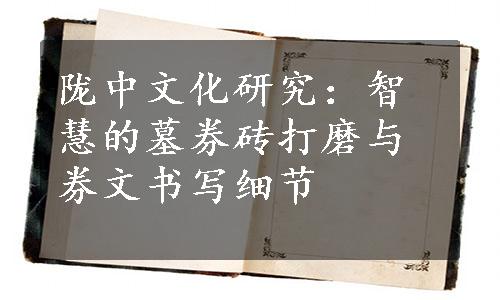 陇中文化研究：智
慧的墓券砖打磨与
券文书写细节